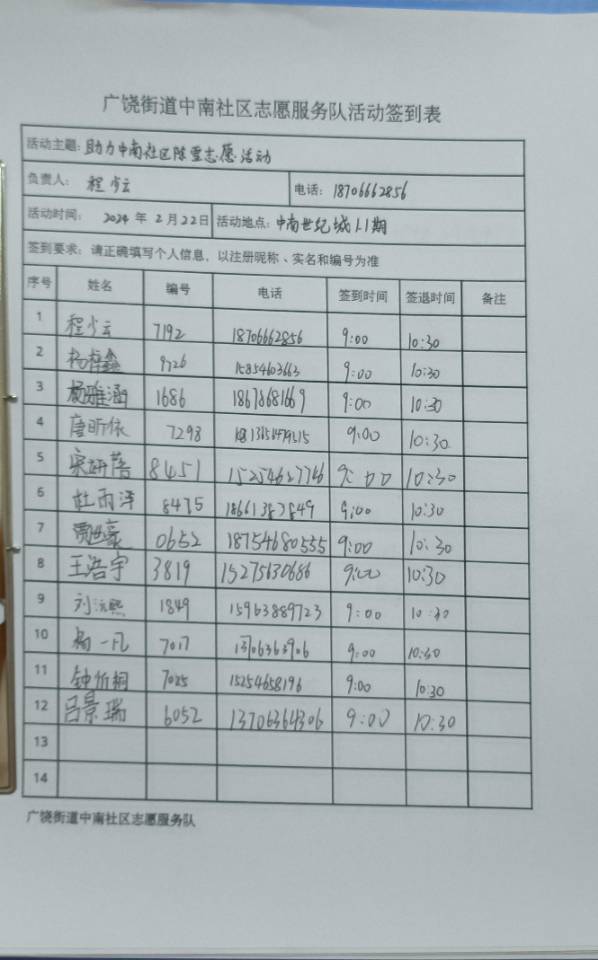 广饶街道中南社区志愿服务队活动签到表
活动主题: 助力中南社区除雪志愿活动
负责人: 程少云 电话: 18706662856
活动时间: 2024 年 2 月 22 日 活动地点: 中南世纪城1.1期
签到要求: 请正确填写个人信息, 以注册昵称、实名和编号为准
序号 姓名 编号 电话 签到时间 签退时间 备注
1 程少云 7192 18706662856 9:00 10:30
2 9726 15854603663 9:00 10:30
3 杨雅涵 1686 18678681669 9:00 10:30
4 唐昕依 7298 9:00 10:30
5 宋妍蓓 8451 15254627746 9:00 10:30
6 杜雨泽 8475 18661387849 9:00 10:30
7 贾思豪 0652 18754680555 9:00 10:30
8 王浩宇 3819 15275630686 9:00 10:30
9 1849 15963889723 9:00 10:30
10 杨一凡 7017 13706363906 9:00 10:30
11 钟忻桐 7025 15254658196 9:00 10:30
12 吕景瑞 6052 13706364306 9:00 10:30
13
14
广饶街道中南社区志愿服务队